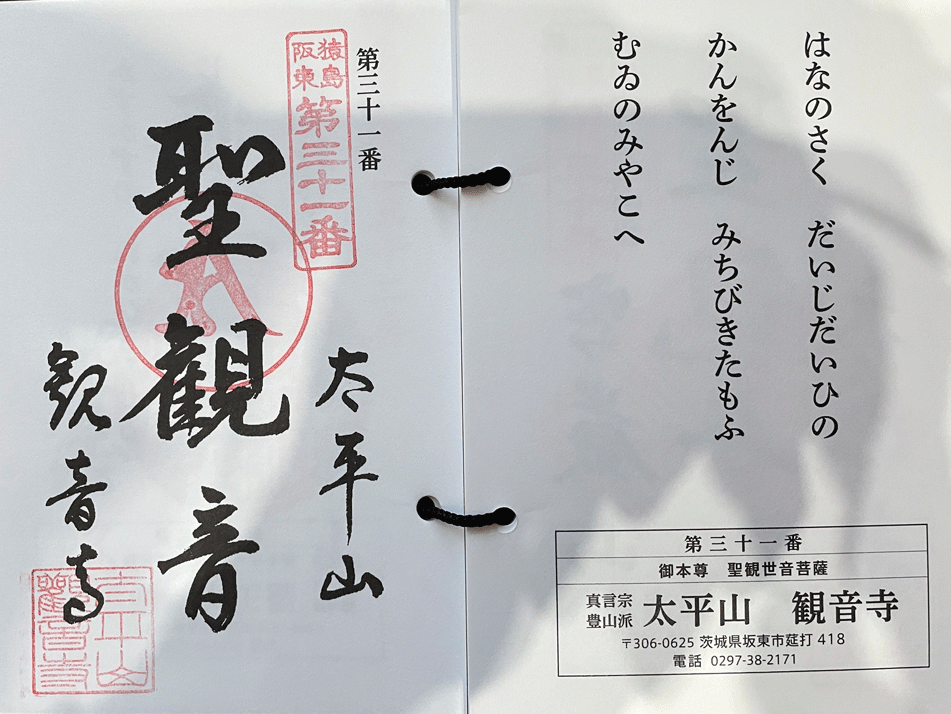 はなのさく　だいじだいひの
かんをんじ　みちびきたもふ
むゐのみやこへ
第三十一番
御本尊　聖観世音菩薩
真言宗
豊山派
太平山　観音寺
〒306-0625 茨城県坂東市莚打 418
電話 0297-38-2171
第三十一番
猿島
阪東
第三十一番
太平山
聖観音
観音寺
太平山
觀音寺